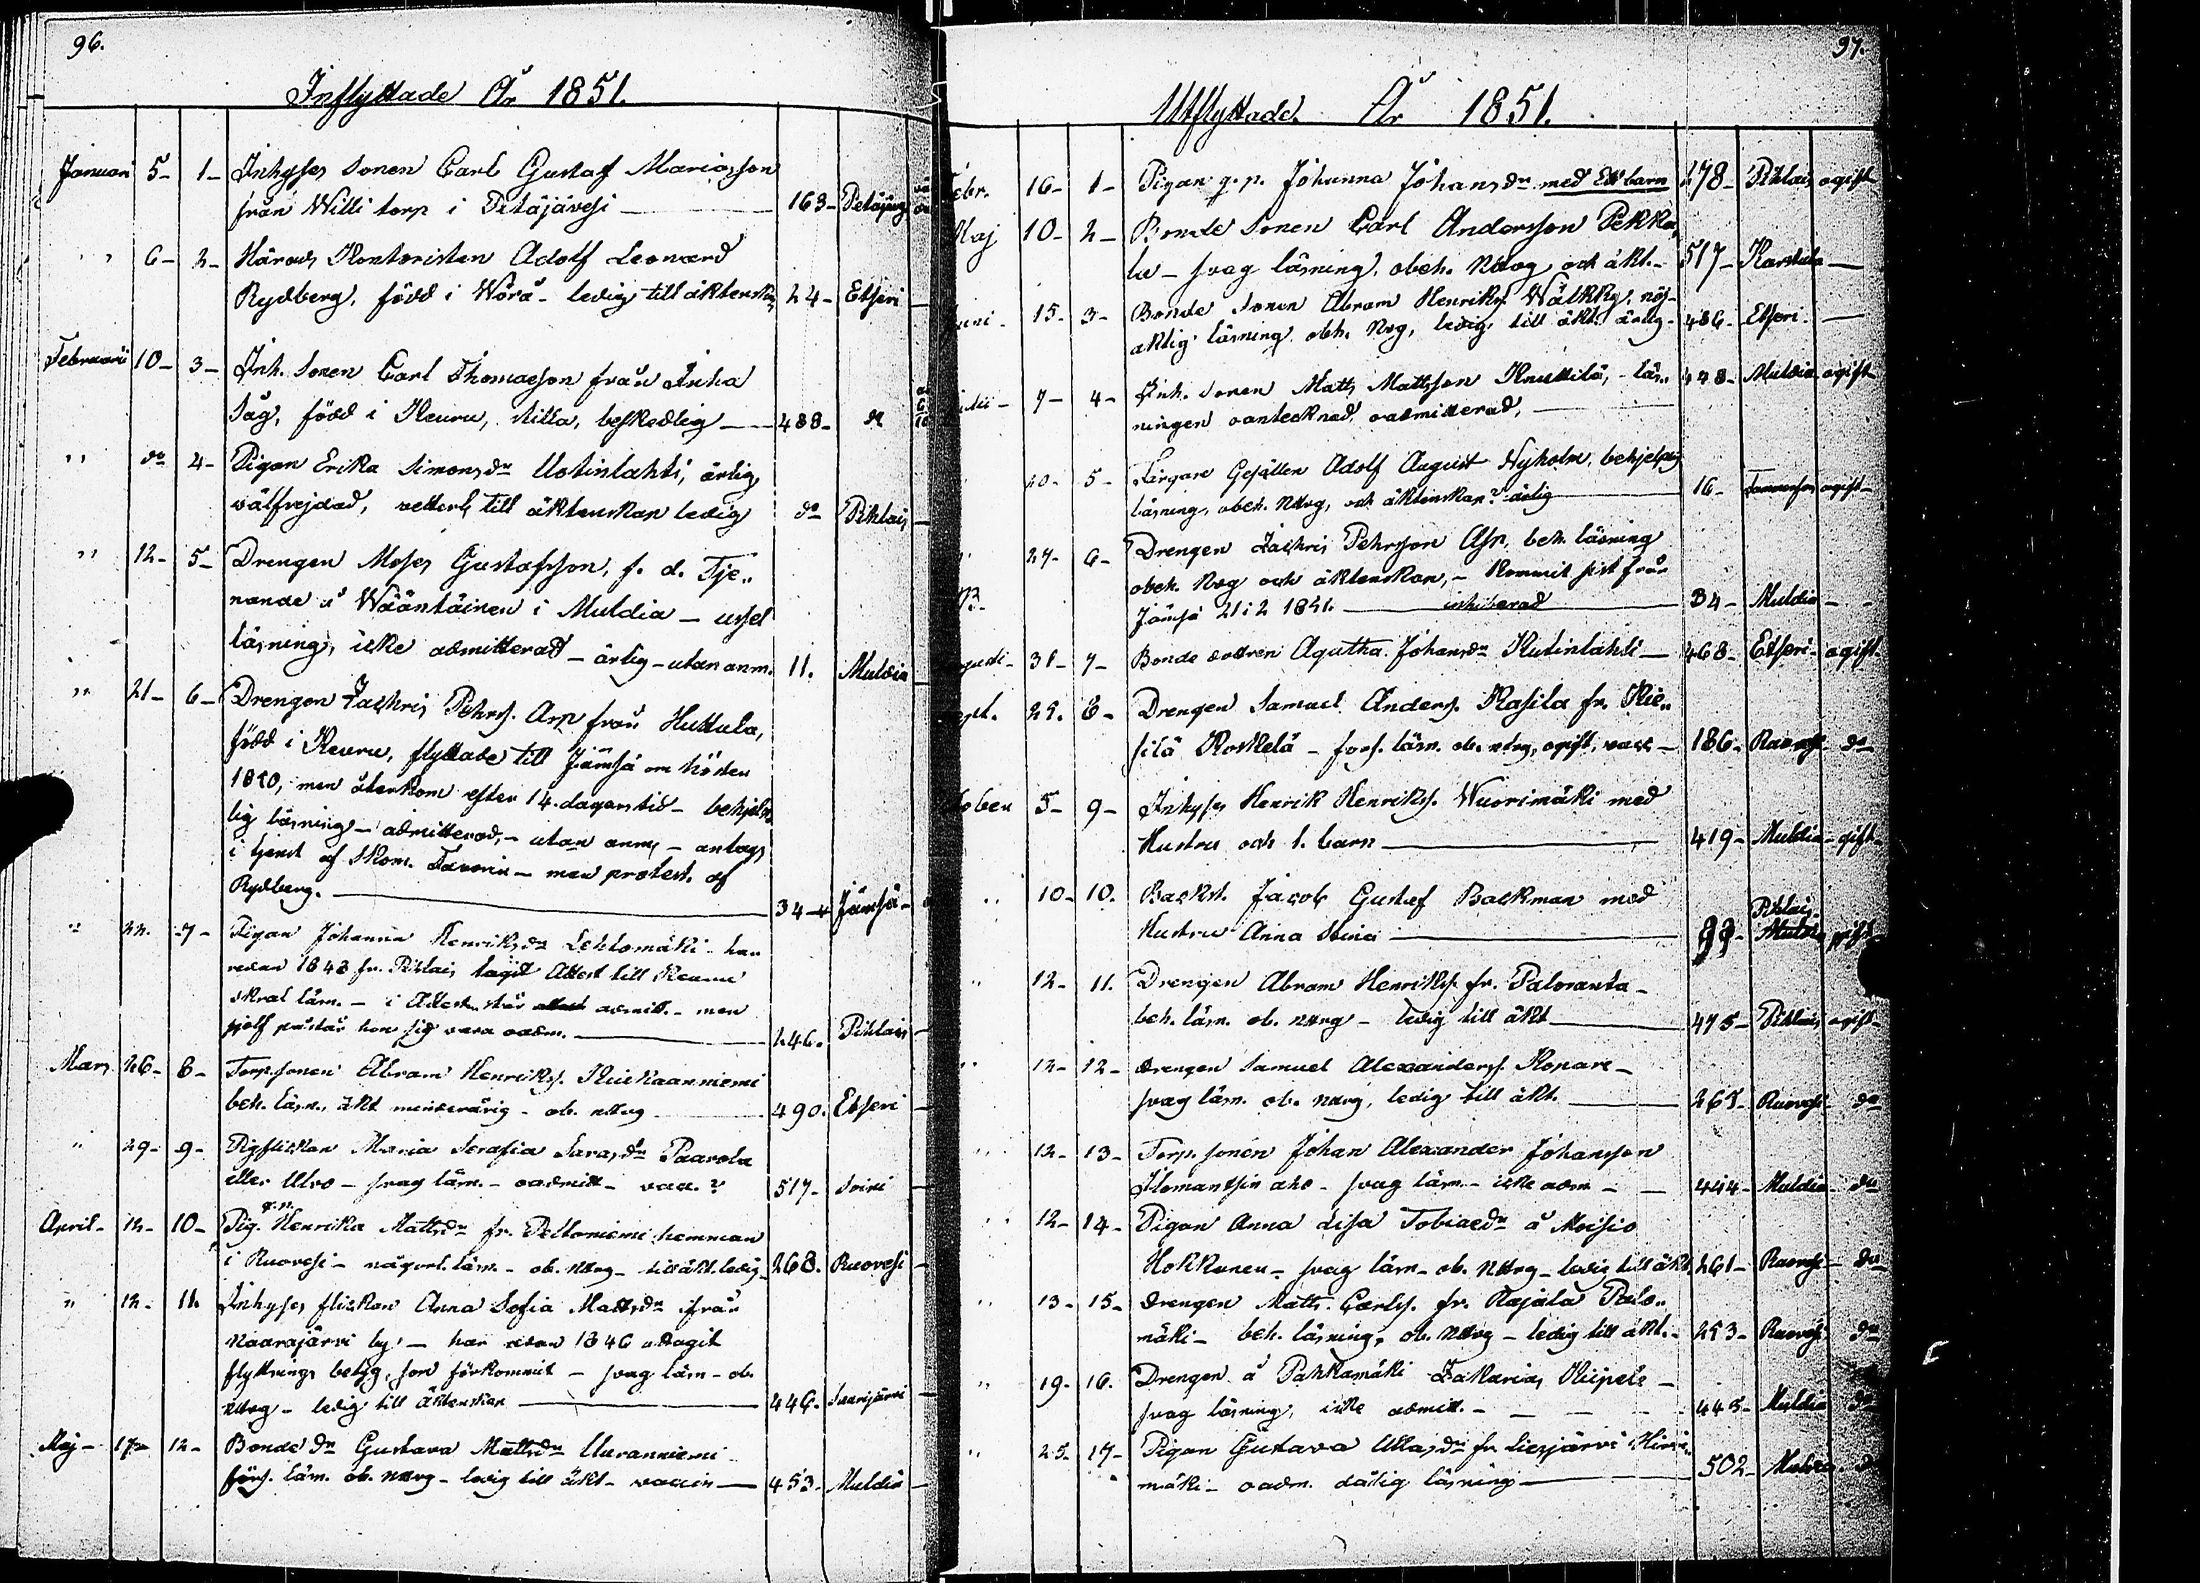 96.
Inflyttade År 1851.
Januari 5- 1- Inhyses Sonen Carl Gustaf Mariasson
från Willi torp i Petäjävesi 163- Petäjäv
" 6- 2- Härads Kontoristen Adolf Leonard
Rydberg, född i Wörå - ledig till äktenskap 24- Etseri
Februari 10- 3- Inh. Sonen Carl Thomasson från Inha
Såg, född i Keuru, stilla, beskedlig 488- do
" do 4- Pigan Erika Simonsdr Uotinlahti, ärlig
välfrejdad, till äktenskap ledig do Pihlais
" 12- 5- Drengen Moses Gustafsson, f. d. Tje-
nande å Wääntäinen i Muldia - usel
läsning, icke admitterad - ärlig - utan anm. 11. Muldia
" 21- 6- Drengen Zachris Pehrs. Asp från Huttula,
född i Keuru, flyttade till Jämsä om hösten
1850, men återkom efter 14. dagars tid - behjelp-
lig läsning - admitterad, - utan anm, - antags
i tjenst af Skom. Favorin - med protest. af
Rydberg. 34- Jämsä-
" 22. 7- Pigan Johanna Henriksdr Lehtomäki - har
redan 1848 fr. Pihlais tagit Attest till Keuru
skral läsn. - i Attest. står admitt. - men
sjelf påstår hon sig vara oadm. 246. Pihlais
Mars 26- 8- Torp. sonen Abram Henrikss. Kiukaanniemi
beh. läsn., äkt minderårig - ob. nttvg 490. Etseri
" 29- 9- Pigflickan Maria Serafia Sarasdr Paavola
eller Ulvo - svag läsn. - oadmitt - vacc.? 517- Soini
April- 12- 10- Pig. q.p. Henrika Mattsdr fr. Peltoniemi hemman
i Ruovesi - någorl. läsn. - ob. nttvg - till äkt. ledig 268. Ruovesi
" 12- 11. Inhyses flickan Anna Sofia Mattsdr ifrån
Naarajärvi by - har redan 1846 uttagit
flyttnings betyg, som förkommit - svag läsn - ob.
nttvg - ledig till äktenskap 446. Saarijärvi
Maj- 17- 12- Bonde dr Gustava Mattsdr Uuranniemi
förs. läsn. ob. nttvg - ledig till äkt - vaccin 453- Muldia
97.
Utflyttade År 1851.
Febr. 16- 1- Pigan q. p. Johanna Johansdr med Ett barn 178- Pihlais ogift
Maj 10- 2- Bonde Sonen Carl Andersson Pekka-
la - svag läsning, obeh. Nttvg och äkt.- 517- Karstula
Juni- 15- 3- Bonde Sonen Abram Henrikss. Wälkky, nöj-
aktig läsning obeh. Nvg, ledig till äkt. ärlig- 486- Etseri-
7- 4- Inh. Sonen Matts Mattsson Knuttila, - läs-
ningen oantecknad, oadmitterad, 448- Muldia ogift
20- 5- Färgare Gesällen Adolf August Nyholm, behjelplig
läsning, obeh. Nttvg, och äktenskap? ärlig 16- ogift-
27- 6- Drengen Zachris Pehrsson Asp, beh. läsning
obeh. Nvg och äktenskap, - Kommit sist från
Jämsä 21/2 1851. inhiberad 34- Muldia
31- 7- Bonde dottren Agatha Johansdr Kutinlahti 468- Etseri- ogift
Sept. 25. 8- Drengen Samuel Anders. Kasila fr. Kie-
silä Koskelä - fors. läsn. ob. nttvg, ogift, vacc- 186- Ruovesi do
5- 9- Inhyses Henrik Henrikss. Wuorimäki med
Hustru och 1. barn 419- Muldia- gift-
" 10- 10. Backst. Jacob Gustaf Backman med
Hustru Anna Stina Pihlais gift
" 12- 11. Drengen Abram Henrikss. fr. Paloranta -
beh. läsn. ob. nttvg - ledig till äkt 475- Pihlais ogift-
" 12- 12- Drengen Samuel Alexanderss. Kopare -
svag läsn. ob. nttvg, ledig till äkt. 265- Ruovesi do
" 12- 13- Torp. sonen Johan Alexander Johansson
Ilomantsin aho - svag läsn. - icke adm - 444- Muldia do
" 12- 14- Pigan Anna Lisa Tobiaedr å Moisio
Hokkanen - svag läsn - ob. Nttvg - ledig till äkt. 261- Ruovesi- do
" 13- 15- Drengen Matts Carlss. fr. Rajala Palo-
mäki - beh. läsning, ob. Nttvg - ledig till äkt.- 253- Ruovesi do
" 19- 16. Drengen å Pahkamäki Zakarias Kiipele -
svag läsning, icke admitt. - 445- Muldia do
" 25- 17- Pigan Gustava Ullasdr fr. Liesjärvi Hiro-
mäki - oadm. dålig läsning 502- Muldia